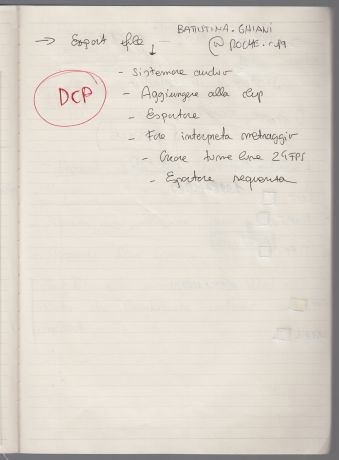 → Export file
BATTISTINA.GHIANI
@ROCHE.
DCP
- Sistemare audio
- Aggiungere alla clip
- Esportare
- Fare interpreta metraggio
- Creare time line 24 FPS
- Esportare sequenza